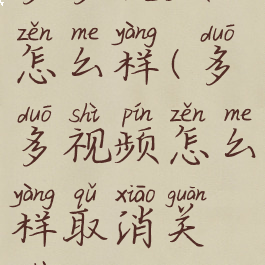 zěn me yàng duō
怎么样(多
duō shì pín zěn me
多视频怎么
yàng qǔ xiāo guān
样取消关